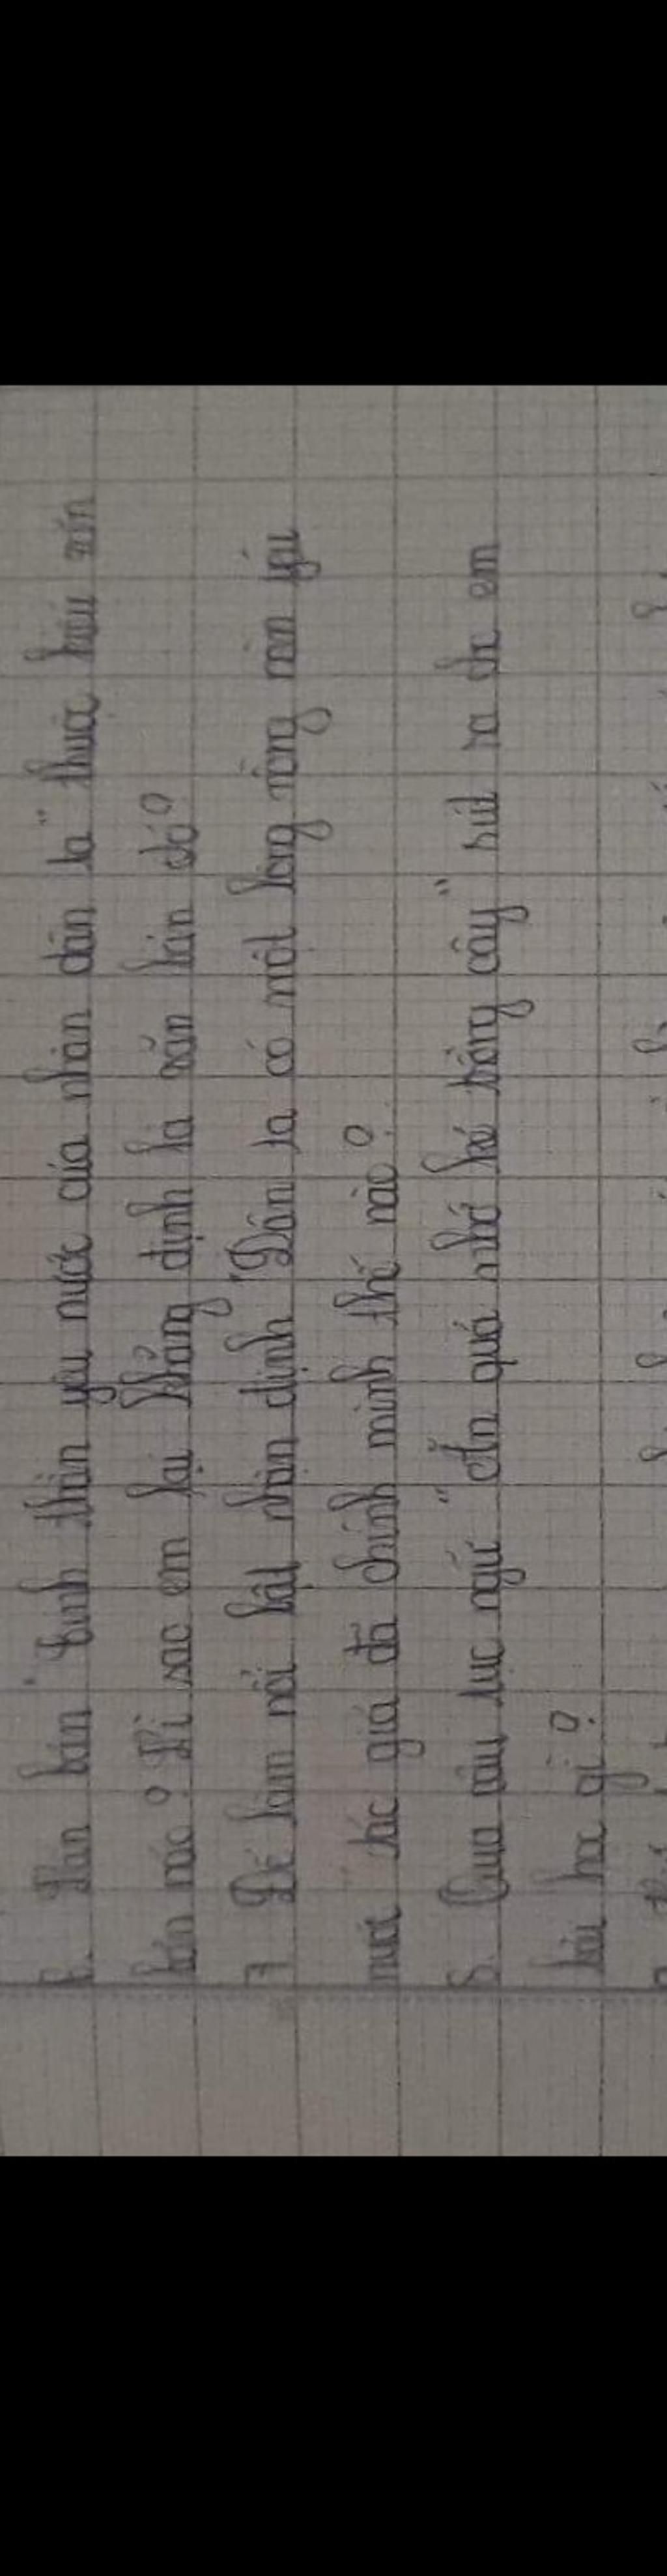 6. Văn bản "Tinh thần yêu nước của nhân dân ta" thuộc kiểu văn
bản nào? Vì sao em lại khẳng định là văn bản đó?
7. Để làm nổi bật nhận định "Dân ta có một lòng nồng nàn yêu
nước" tác giả đã chính minh thế nào?
8. Qua câu tục ngữ "Ăn quả nhớ kẻ trồng cây" rút ra cho em
bài học gì?